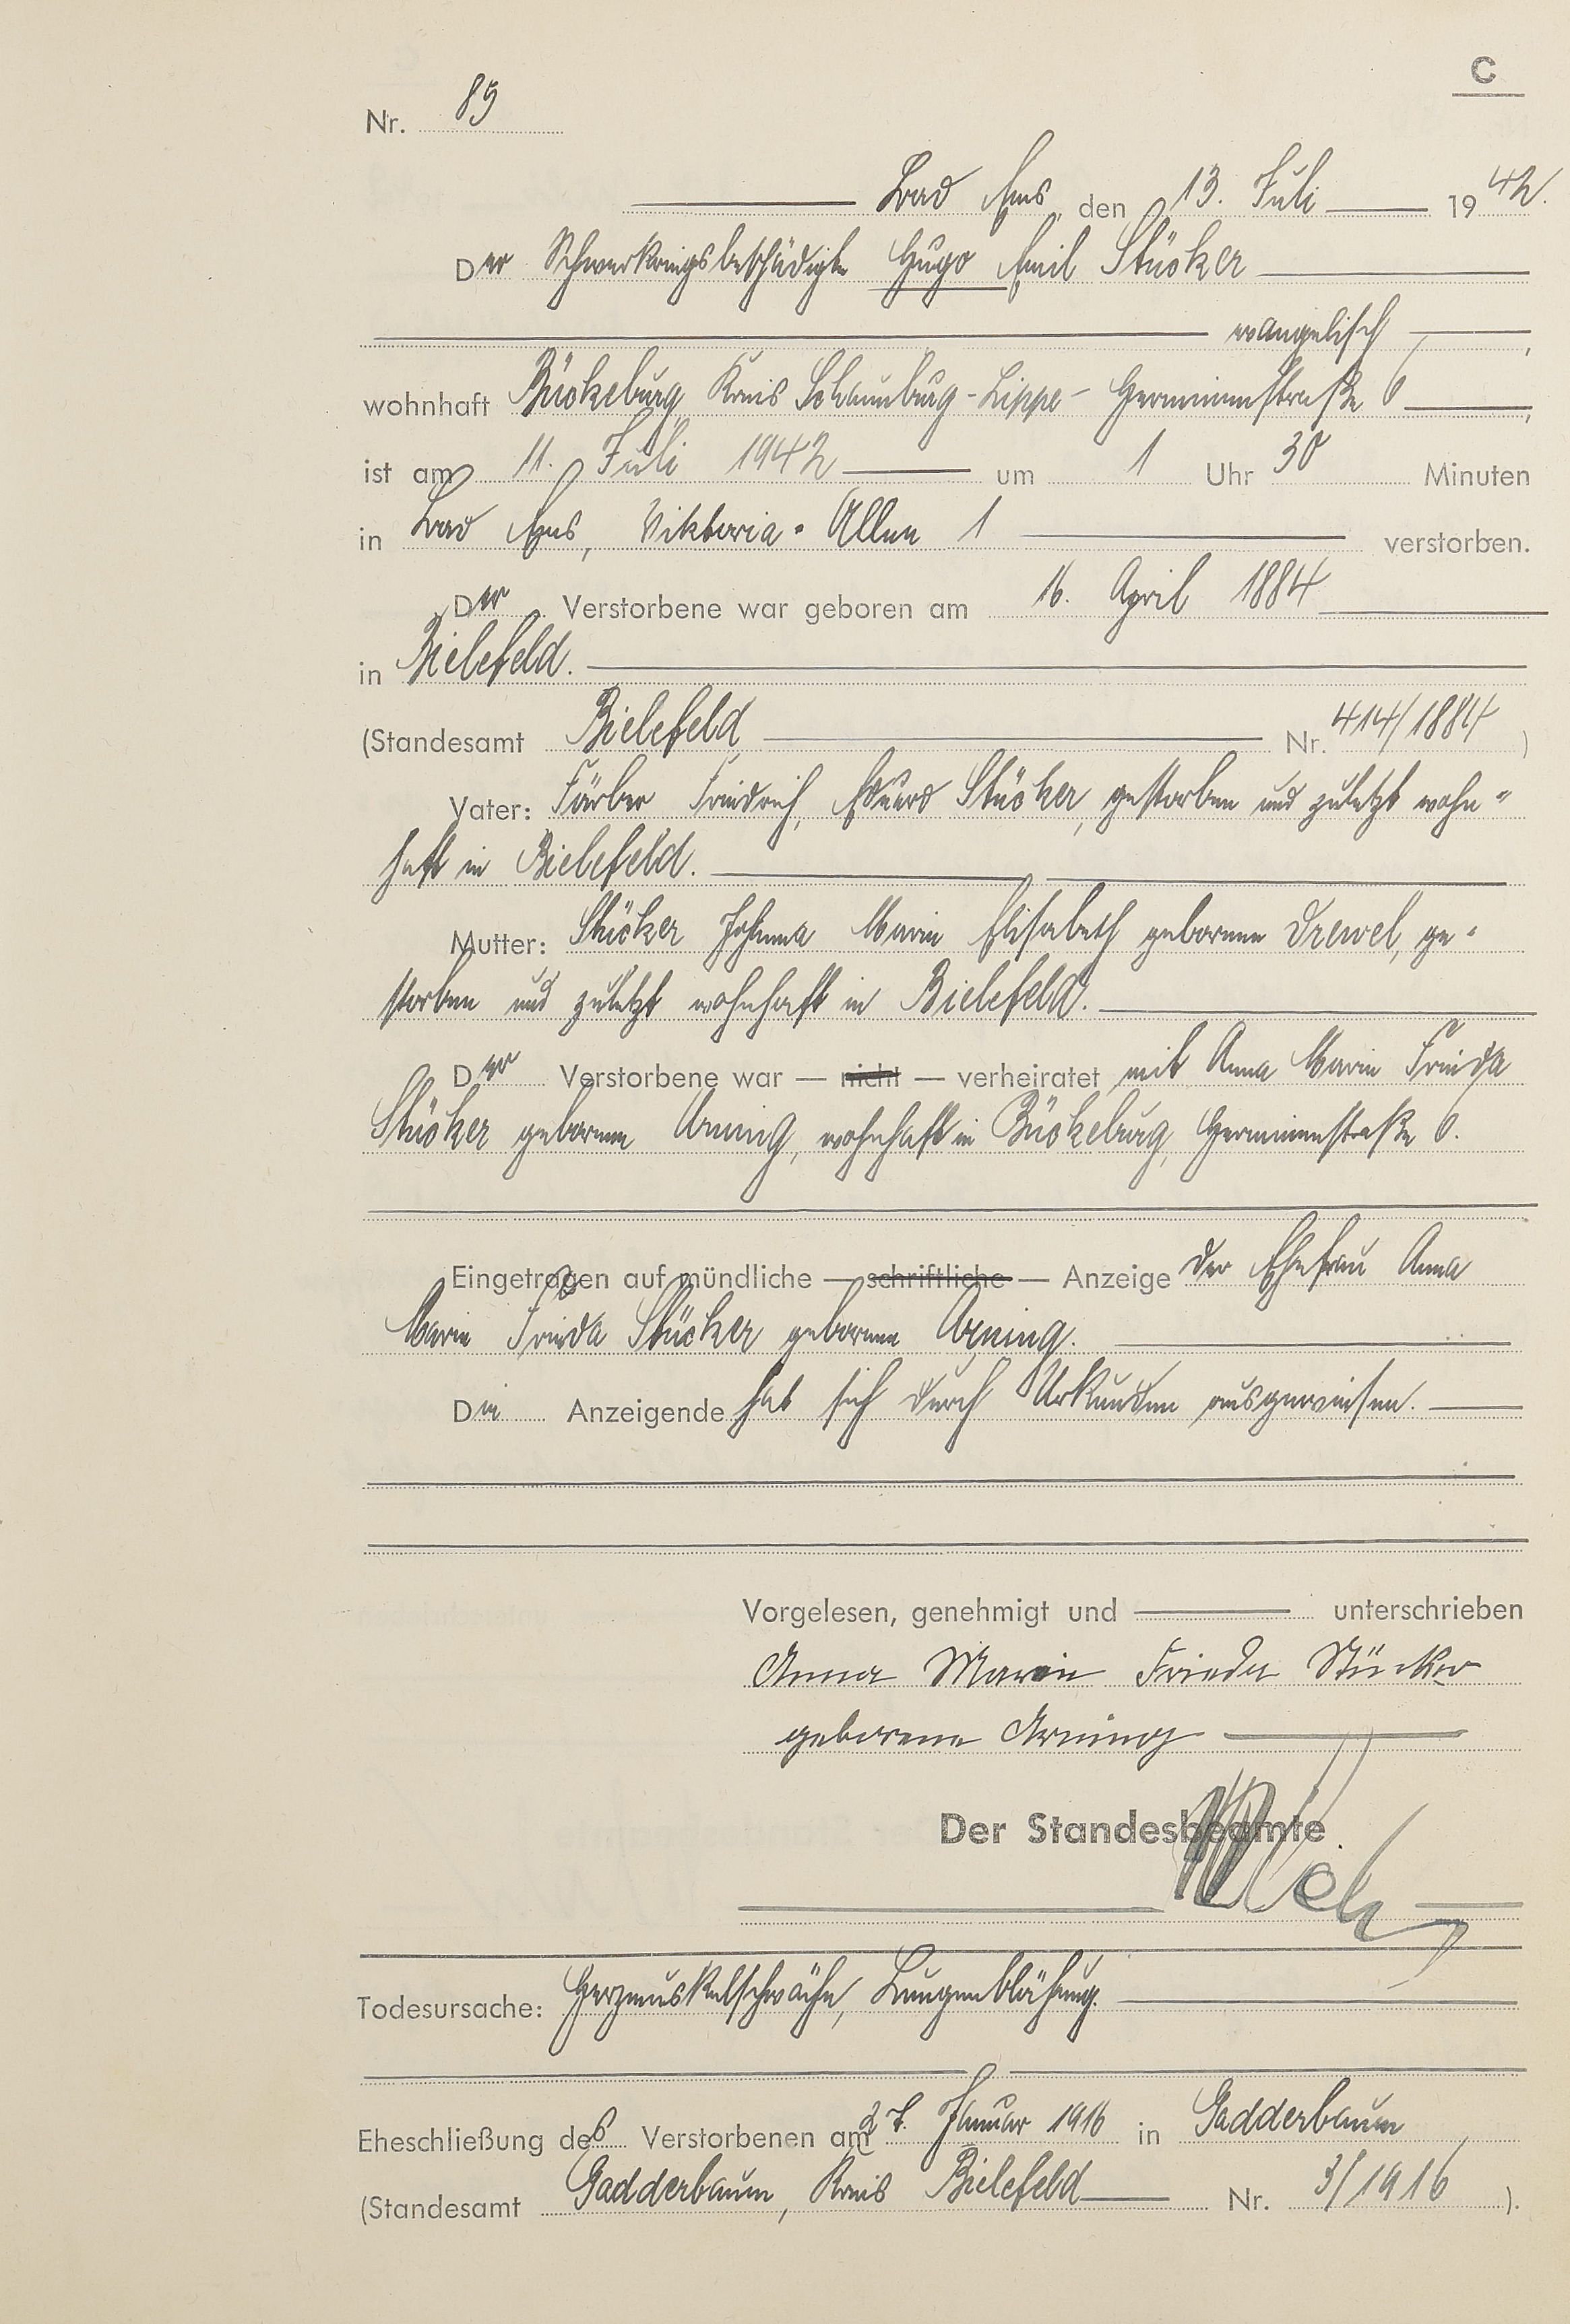 C
Nr. 89
Bad Ems, den 13. Juli 1942.
Der Schwerkriegsbeschädigte Hugo Emil Stücker
evangelisch,
wohnhaft Bückeburg Kreis Schaumburg-Lippe- Herminenstraße 6,
ist am 11. Juli 1942 um 1 Uhr 30 Minuten
in Bad Ems, Viktoria-Allee 1 verstorben.
Der Verstorbene war geboren am 16. April 1884
in Bielefeld.
(Standesamt Bielefeld Nr. 414/1884)
Vater: Färber Friedrich, Eduard Stücker, gestorben und zuletzt wohn-
haft in Bielefeld.
Mutter: Stücker Johanna Marie Elisabeth geborene Drewel, ge-
storben und zuletzt wohnhaft in Bielefeld.
Der Verstorbene war — nicht — verheiratet mit Anna Marie Frieda
Stücker geborene Arning, wohnhaft in Bückeburg, Herminenstraße 6.
Eingetragen auf mündliche — schriftliche — Anzeige der Ehefrau Anna
Marie Frieda Stücker geborene Arning.
Die Anzeigende hat sich durch Urkunden ausgewiesen.
Vorgelesen, genehmigt und unterschrieben
Anna Marie Frieda Stücker
geborene Arning
Der Standesbeamte
Todesursache: Herzmuskelschwäche, Lungenblähung.
Eheschließung des Verstorbenen am 27. Januar 1916 in Gadderbaum
(Standesamt Gadderbaum, Kreis Bielefeld Nr. 3/1916).